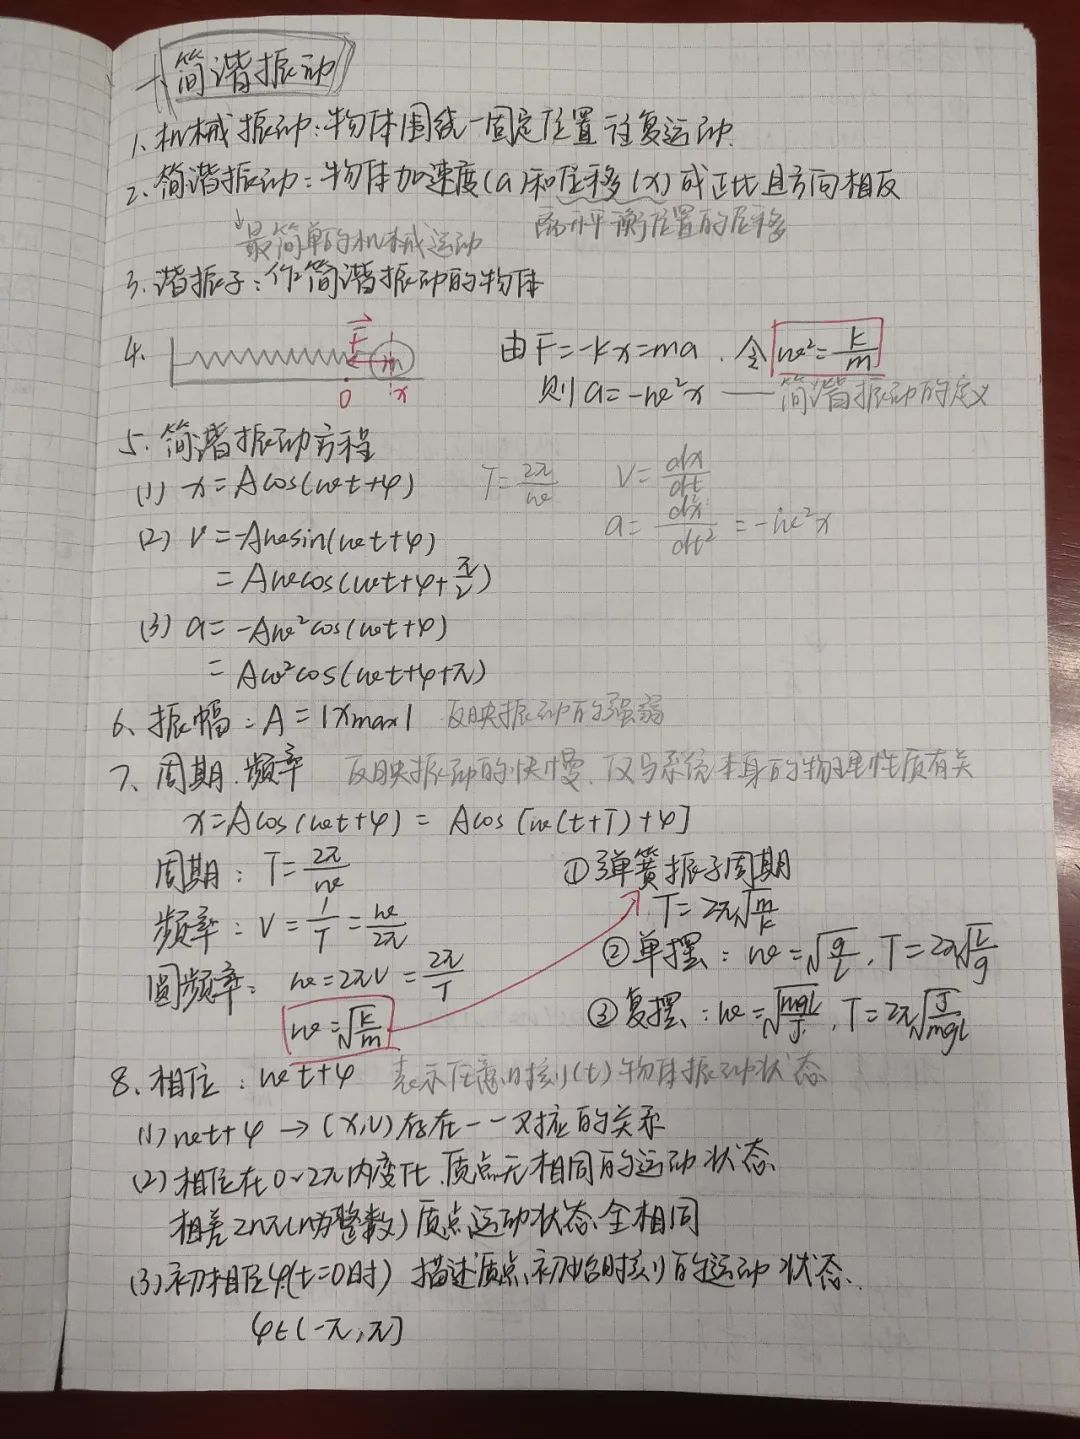 一、简谐振动
1、机械振动：物体围绕一固定位置往复运动.
2、简谐振动：物体加速度(a)和位移(x)成正比且方向相反
↓最简单的机械运动 离开平衡位置的位移
3、谐振子：作简谐振动的物体
4、 F m O x 由F=-kx=ma，令 ω²=k/m
则 a=-ω²x —— 简谐振动的定义
5、简谐振动方程
(1) x=Acos(ωt+φ) T=2π/ω V=dx/dt
a=d²x/dt²=-ω²x
(2) V=-Aωsin(ωt+φ)
=Aωcos(ωt+φ+π/2)
(3) a=-Aω²cos(ωt+φ)
=Aω²cos(ωt+φ+π)
6、振幅：A=|Xmax| 反映振动的强弱
7、周期、频率 反映振动的快慢、仅与系统本身的物理性质有关
x=Acos(ωt+φ)=Acos[ω(t+T)+φ]
周期：T=2π/ω
频率：V=1/T=ω/2π
圆频率：ω=2πV=2π/T
ω=√(k/m)
①弹簧振子周期
T=2π√(m/k)
②单摆：ω=√(g/l)，T=2π√(L/g)
③复摆：ω=√(mgL/J)，T=2π√(J/mgL)
8、相位：ωt+φ 表示任意时刻(t)物体振动状态
(1) ωt+φ→(x,v)存在一一对应的关系
(2) 相位在0~2π内变化，质点无相同的运动状态、
相差2nπ(n为整数)质点运动状态全相同
(3) 初相位φ(t=0时) 描述质点初始时刻的运动状态、
φ∈(-π,π]